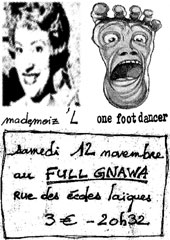 mademoiz 'L
one foot dancer
samedi 12 novembre
au FULL GNAWA
rue des écoles laïques
3 € - 20h32